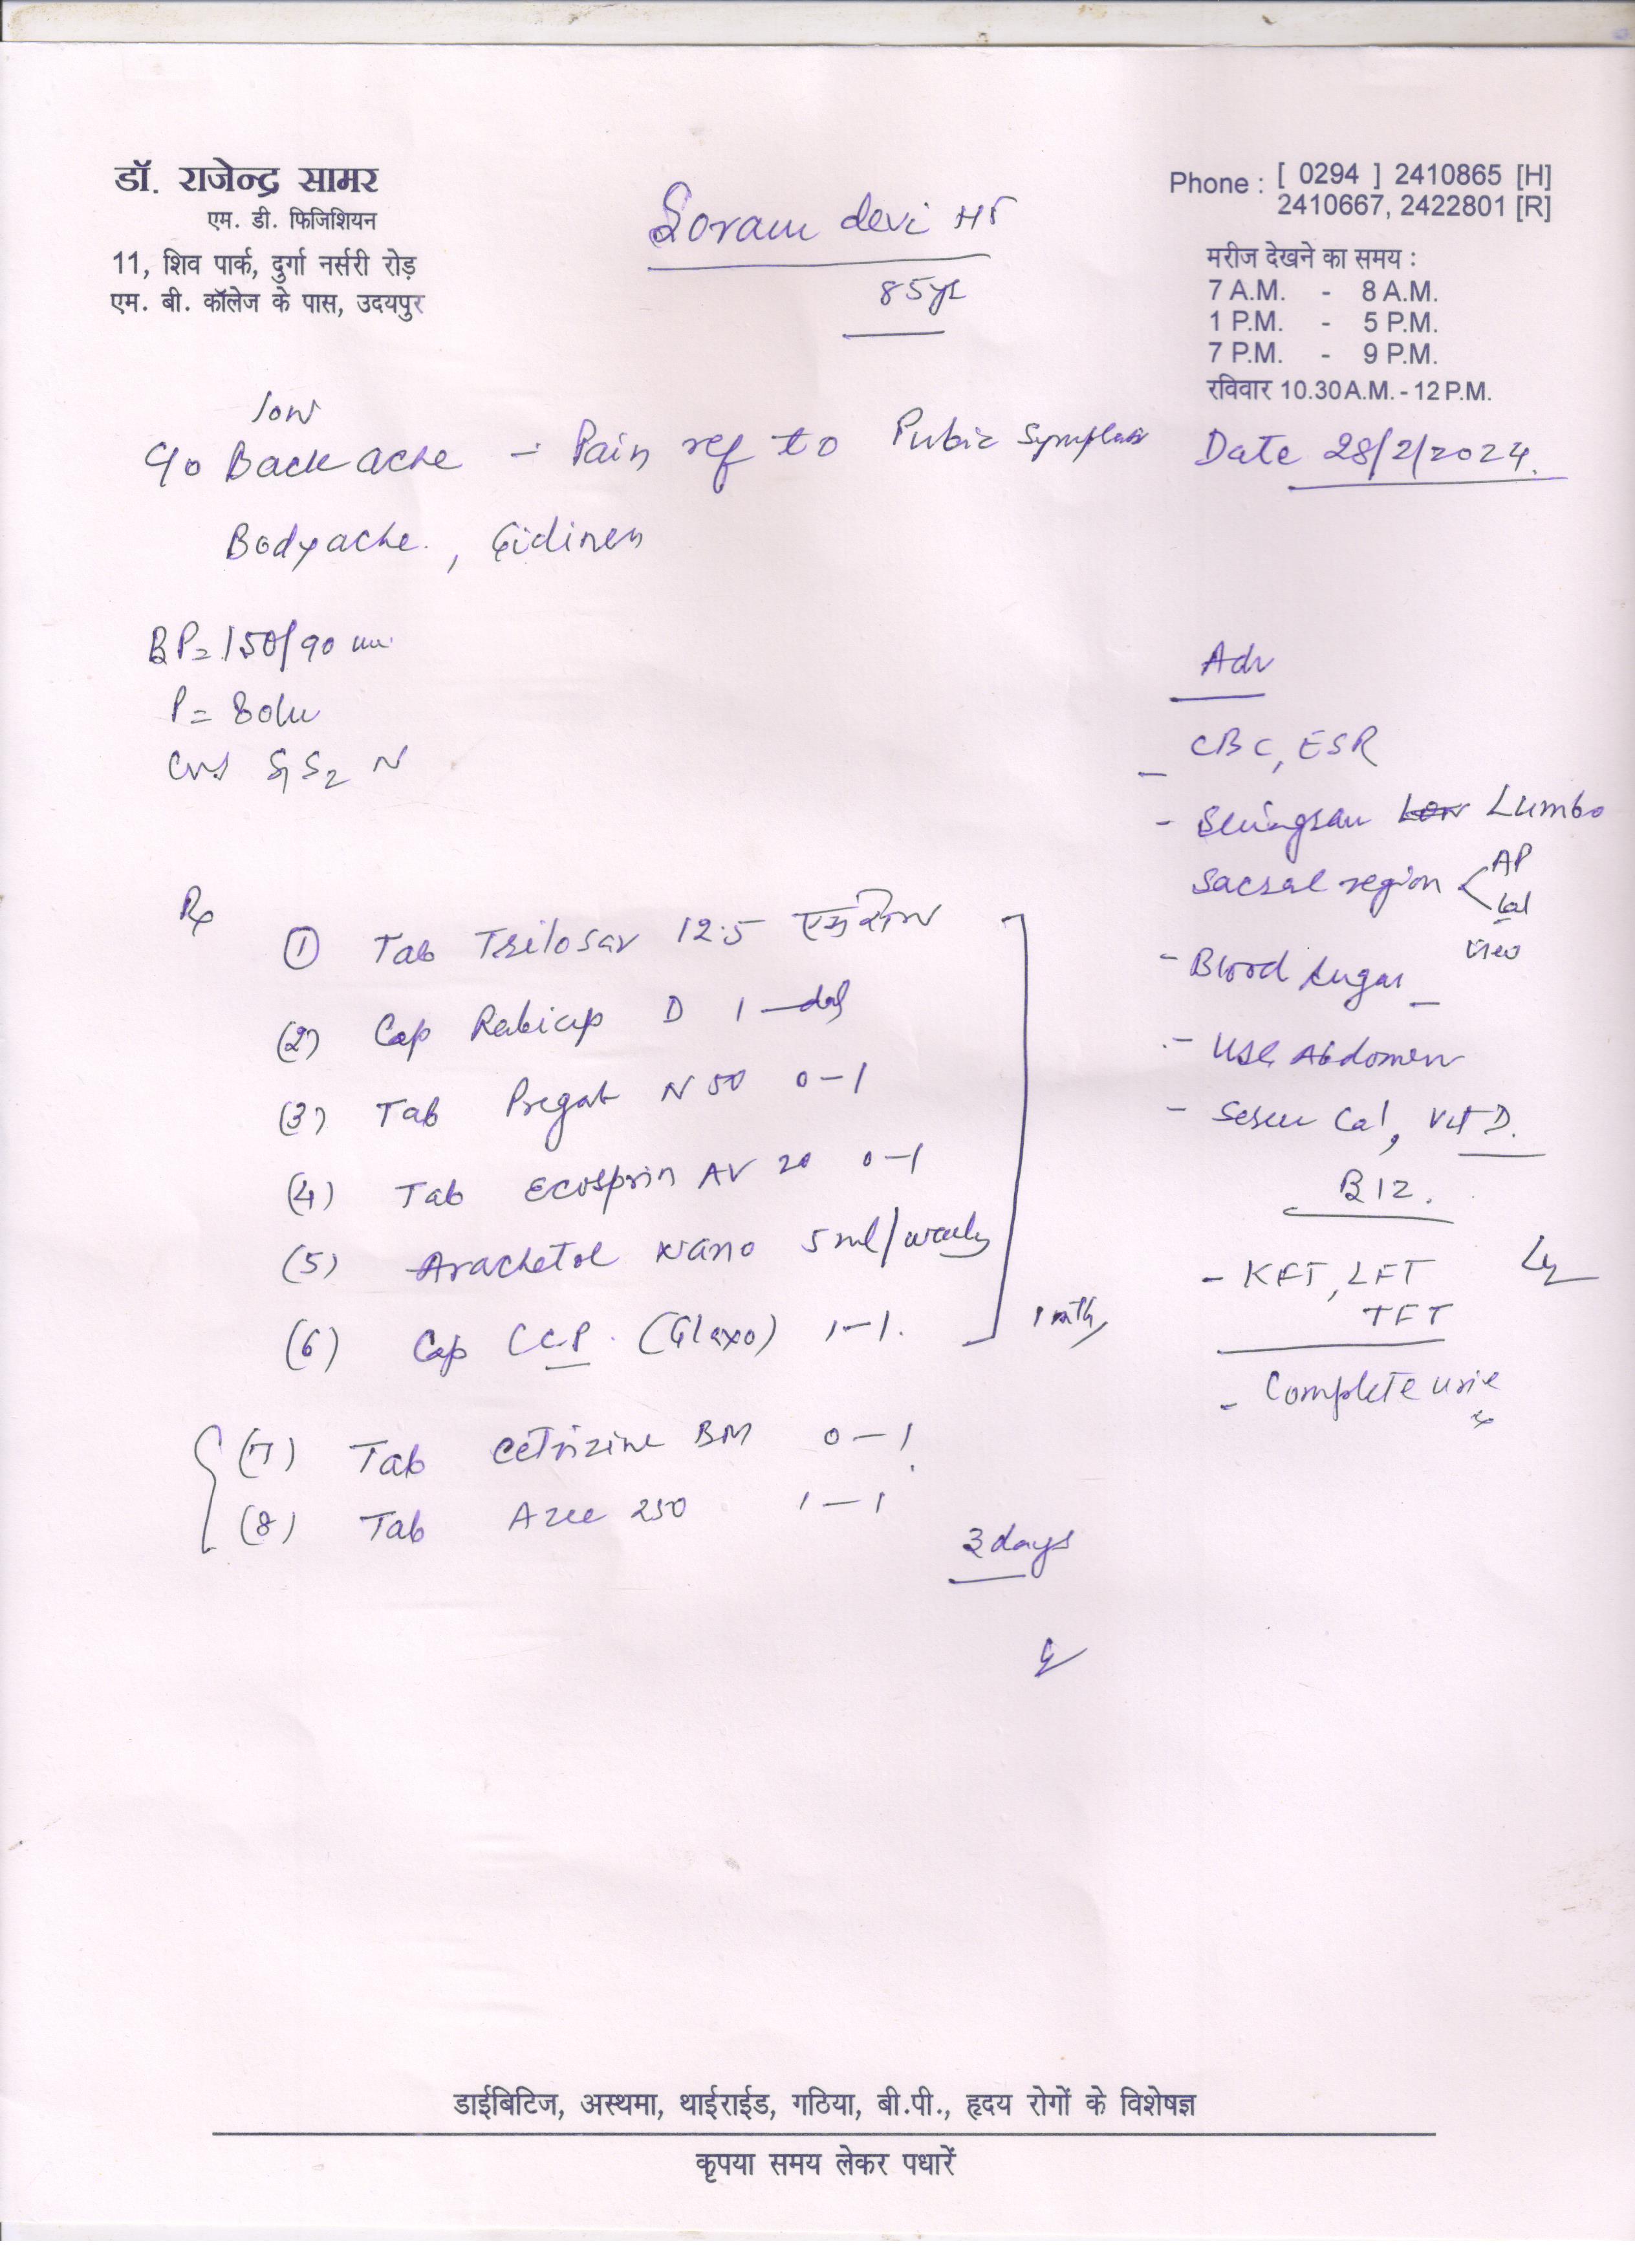 डॉ. राजेन्द्र सामर
एम. डी. फिजिशियन
11, शिव पार्क, दुर्गा नर्सरी रोड़
एम. बी. कॉलेज के पास, उदयपुर
Soram devi HT
85yr
Phone : [ 0294 ] 2410865 [H]
2410667, 2422801 [R]
मरीज देखने का समय :
7 A.M. - 8 A.M.
1 P.M. - 5 P.M.
7 P.M. - 9 P.M.
रविवार 10.30 A.M. - 12 P.M.
Date 28/2/2024.
low
c/o Back ache - Pain ref to Pubic
Bodyache. , Gidines
BP = 150/90
P = 80
CVS S1 S2 N
Rx
(1) Tab Trilosar 12.5
(2) Cap Rabicip D 1 - daily
(3) Tab Pregab N 50 0-1
(4) Tab Ecosprin AV 20 0-1
(5) Arachetol Nano 5 ml/weekly
(6) Cap CCP. (Glaxo) 1-1.
1 mth
(7) Tab Cetrizine BM 0-1
(8) Tab Azee 250 1-1
3 days
Adv
- CBC, ESR
- Lumbo
Sacral region < AP
Lat
view
- Blood Sugar
- USG Abdomen
- Serum Cal, Vit D.
B12.
- KFT, LFT
TFT
- Complete urine
डाईबिटिज, अस्थमा, थाईराईड, गठिया, बी.पी., हृदय रोगों के विशेषज्ञ
कृपया समय लेकर पधारें